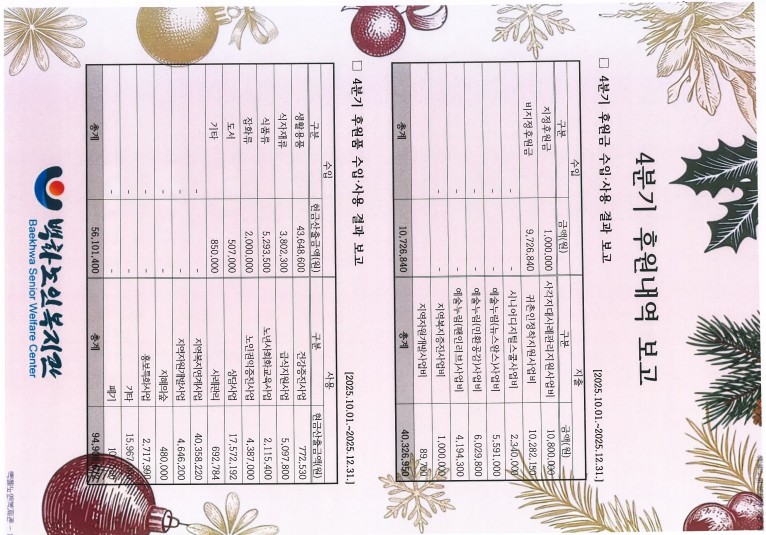 4분기 후원내역 보고
□ 4분기 후원금 수입·사용 결과 보고
[2025.10.01.~2025.12.31.]
수입 지출
구분 금액(원) 구분 금액(원)
지정후원금 1,000,000 사각지대사례관리지원사업비 10,800,000
비지정후원금 9,726,840 귀촌인정착지원사업비 10,282,150
- - 시니어디지털스쿨사업비 2,340,000
- - 예술누림(뉴스왁스)사업비 5,591,000
- - 예술누림(민화공감)사업비 6,029,800
- - 예술누림(팬인리브)사업비 4,194,300
- - 지역복지증진사업비 1,000,000
- - 지역자원개발사업비 89,700
총계 10,726,840 총계 40,326,950
□ 4분기 후원품 수입·사용 결과 보고
[2025.10.01.~2025.12.31.]
수입 사용
구분 현금산출금액(원) 구분 현금산출금액(원)
생활용품 43,648,600 건강증진사업 772,530
식자재류 3,802,300 급식지원사업 5,097,800
식품류 5,293,500 노년사회화교육사업 2,115,400
잡화류 2,000,000 노인권익증진사업 4,387,000
도서 507,000 상담사업 17,572,192
기타 850,000 사례관리 692,784
- - 지역복지연계사업 40,358,220
- - 지역자원개발사업 4,646,200
- - 480,000
- - 홍보특화사업 2,717,990
- - 기타
- - 폐기
총계 56,101,400 총계
백화노인복지관
Baekhwa Senior Welfare Center